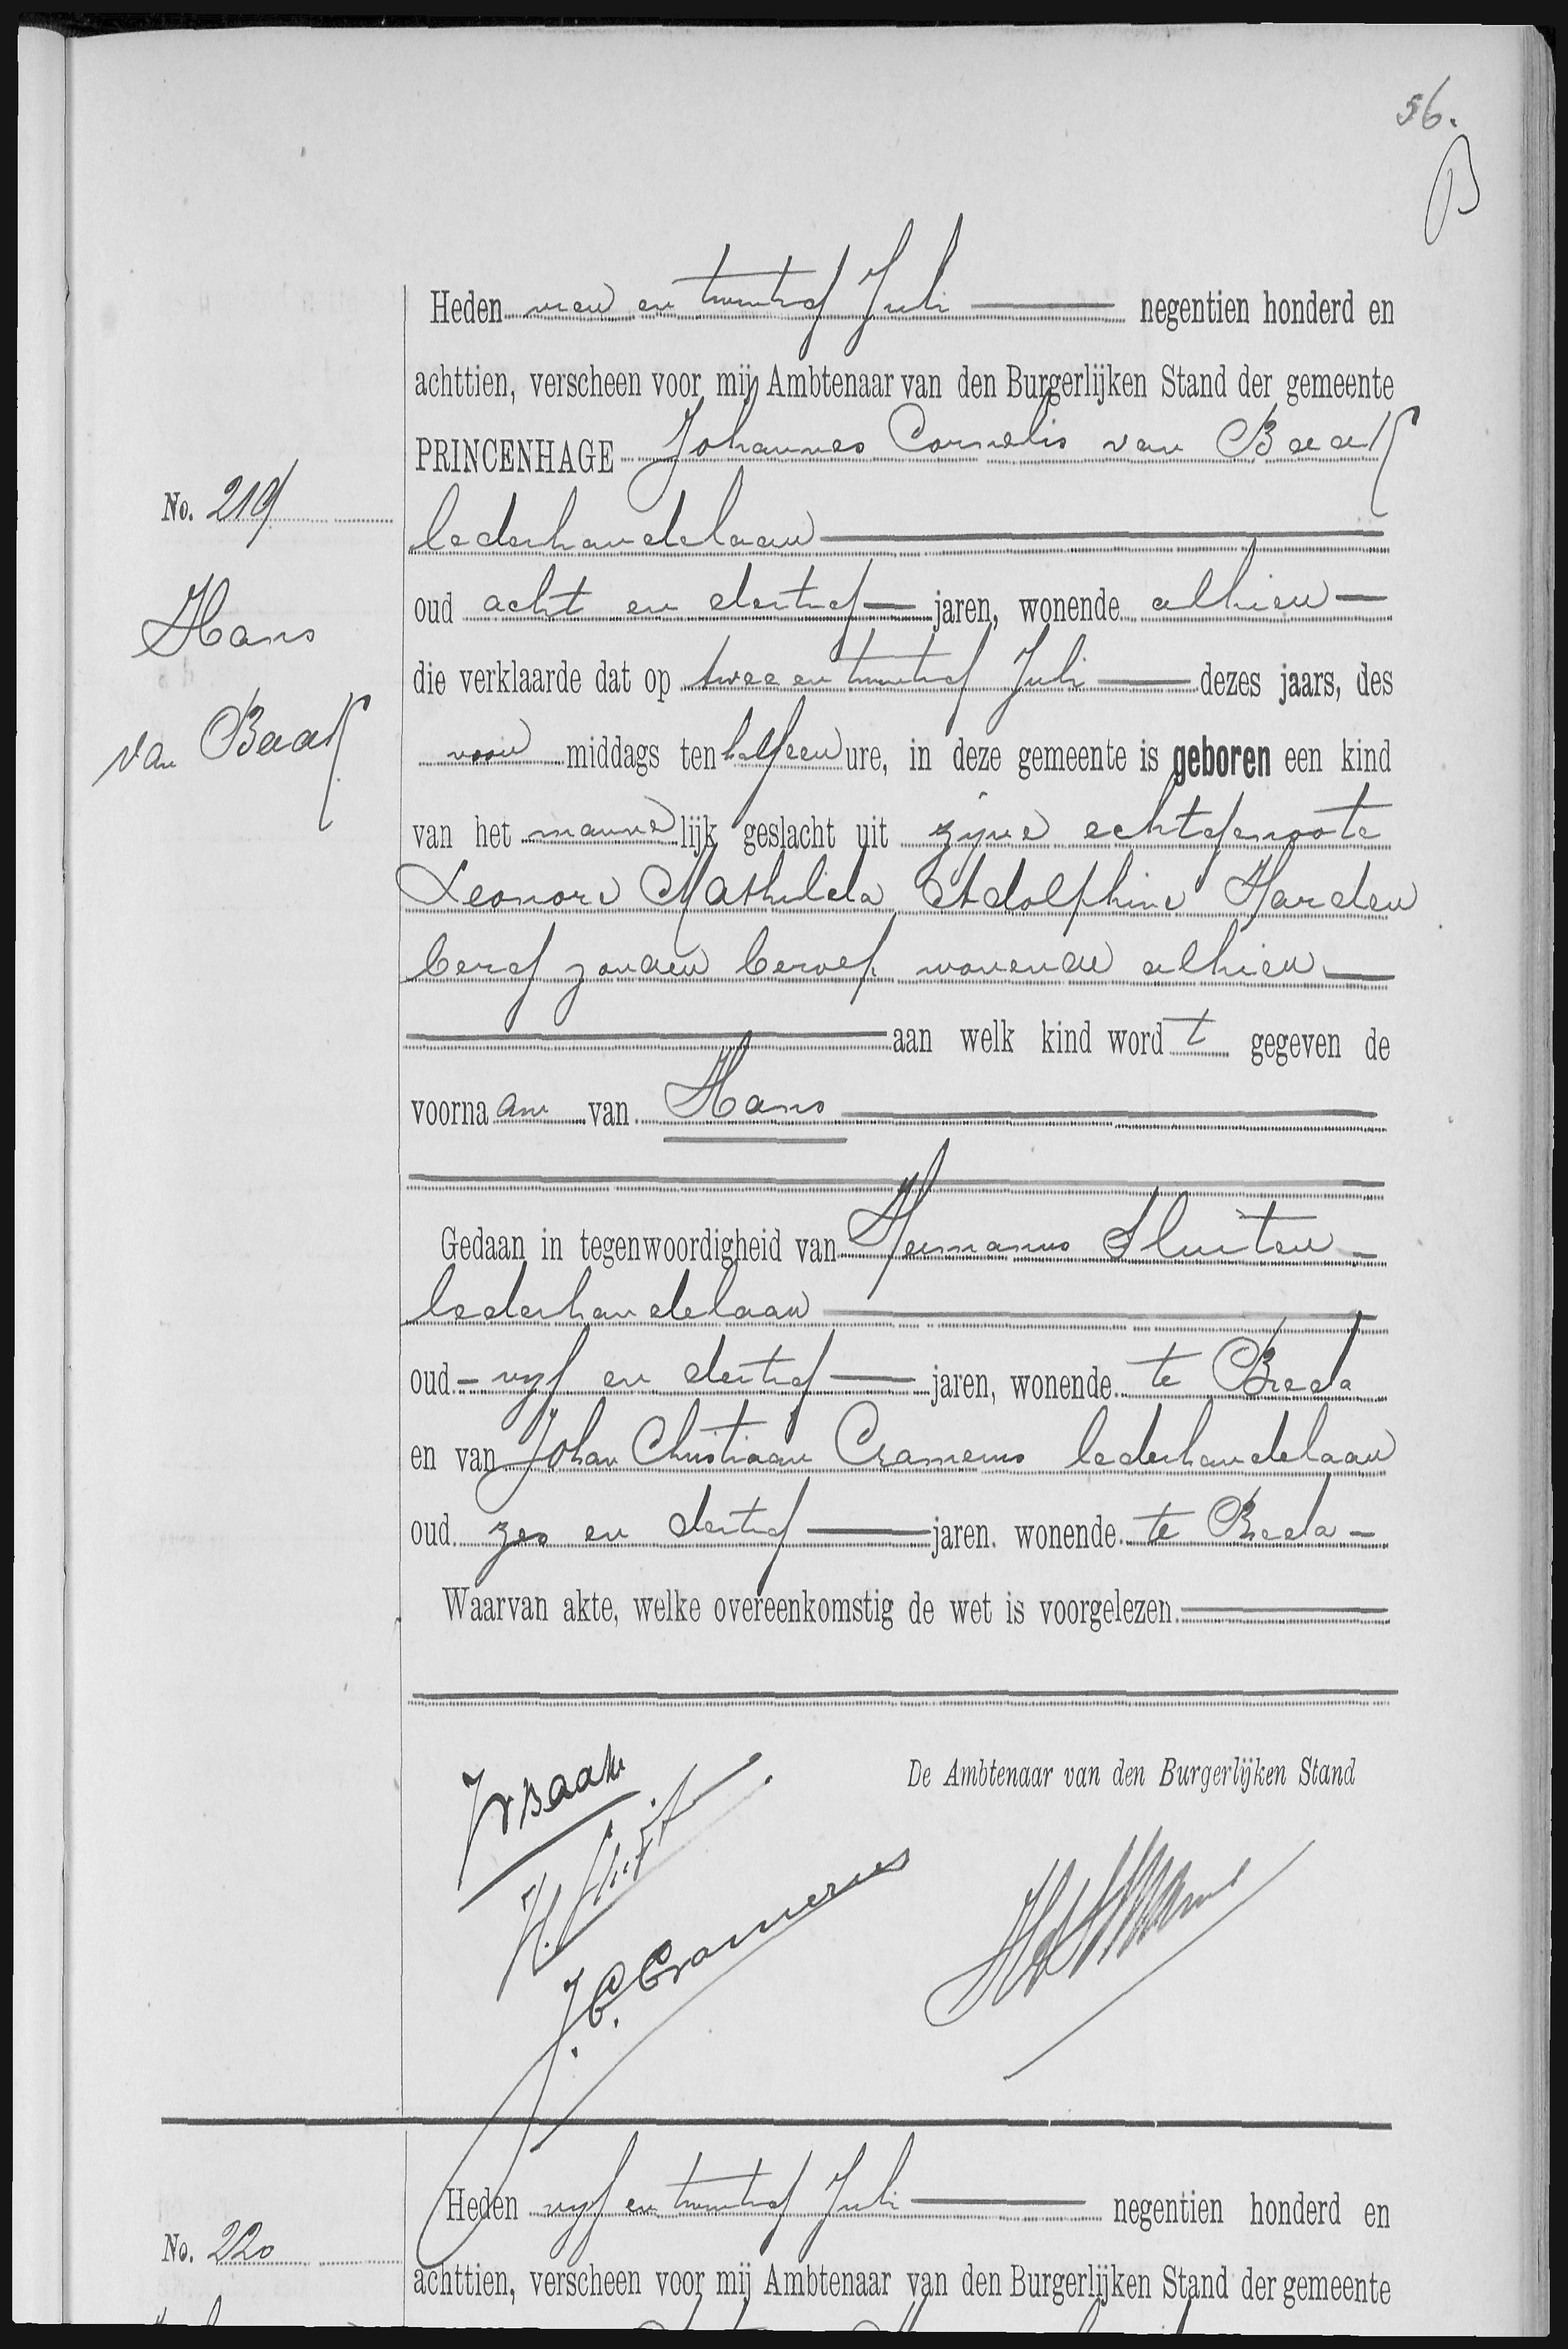 56.
B
Heden vier en twintig Juli negentien honderd en
achttien, verscheen voor mij Ambtenaar van den Burgerlijken Stand der gemeente
PRINCENHAGE Johannes Cornelis van Baak
No. 219
lederhandelaar
Hans
oud acht en dertig jaren, wonende alhier
die verklaarde dat op twee en twintig Juli dezes jaars, des
van Baak
voor middags ten half een ure, in deze gemeente is geboren een kind
van het manne lijk geslacht uit zijne echtgenoote
Leonore Mathilda Adolphine Harden
berg zonder beroep wonende alhier
aan welk kind word t gegeven de
voorna am van Hans
Gedaan in tegenwoordigheid van Hermanus Sluiter
lederhandelaar
oud vijf en dertig jaren, wonende te Breda
en van Johan Christiaan Cramerus lederhandelaar
oud zes en dertig jaren. wonende te Breda
Waarvan akte, welke overeenkomstig de wet is voorgelezen.
De Ambtenaar van den Burgerlijken Stand
JvBaak
J.C. Cramerus
Heden vijf en twintig Juli negentien honderd en
No. 220
achttien, verscheen voor mij Ambtenaar van den Burgerlijken Stand der gemeente